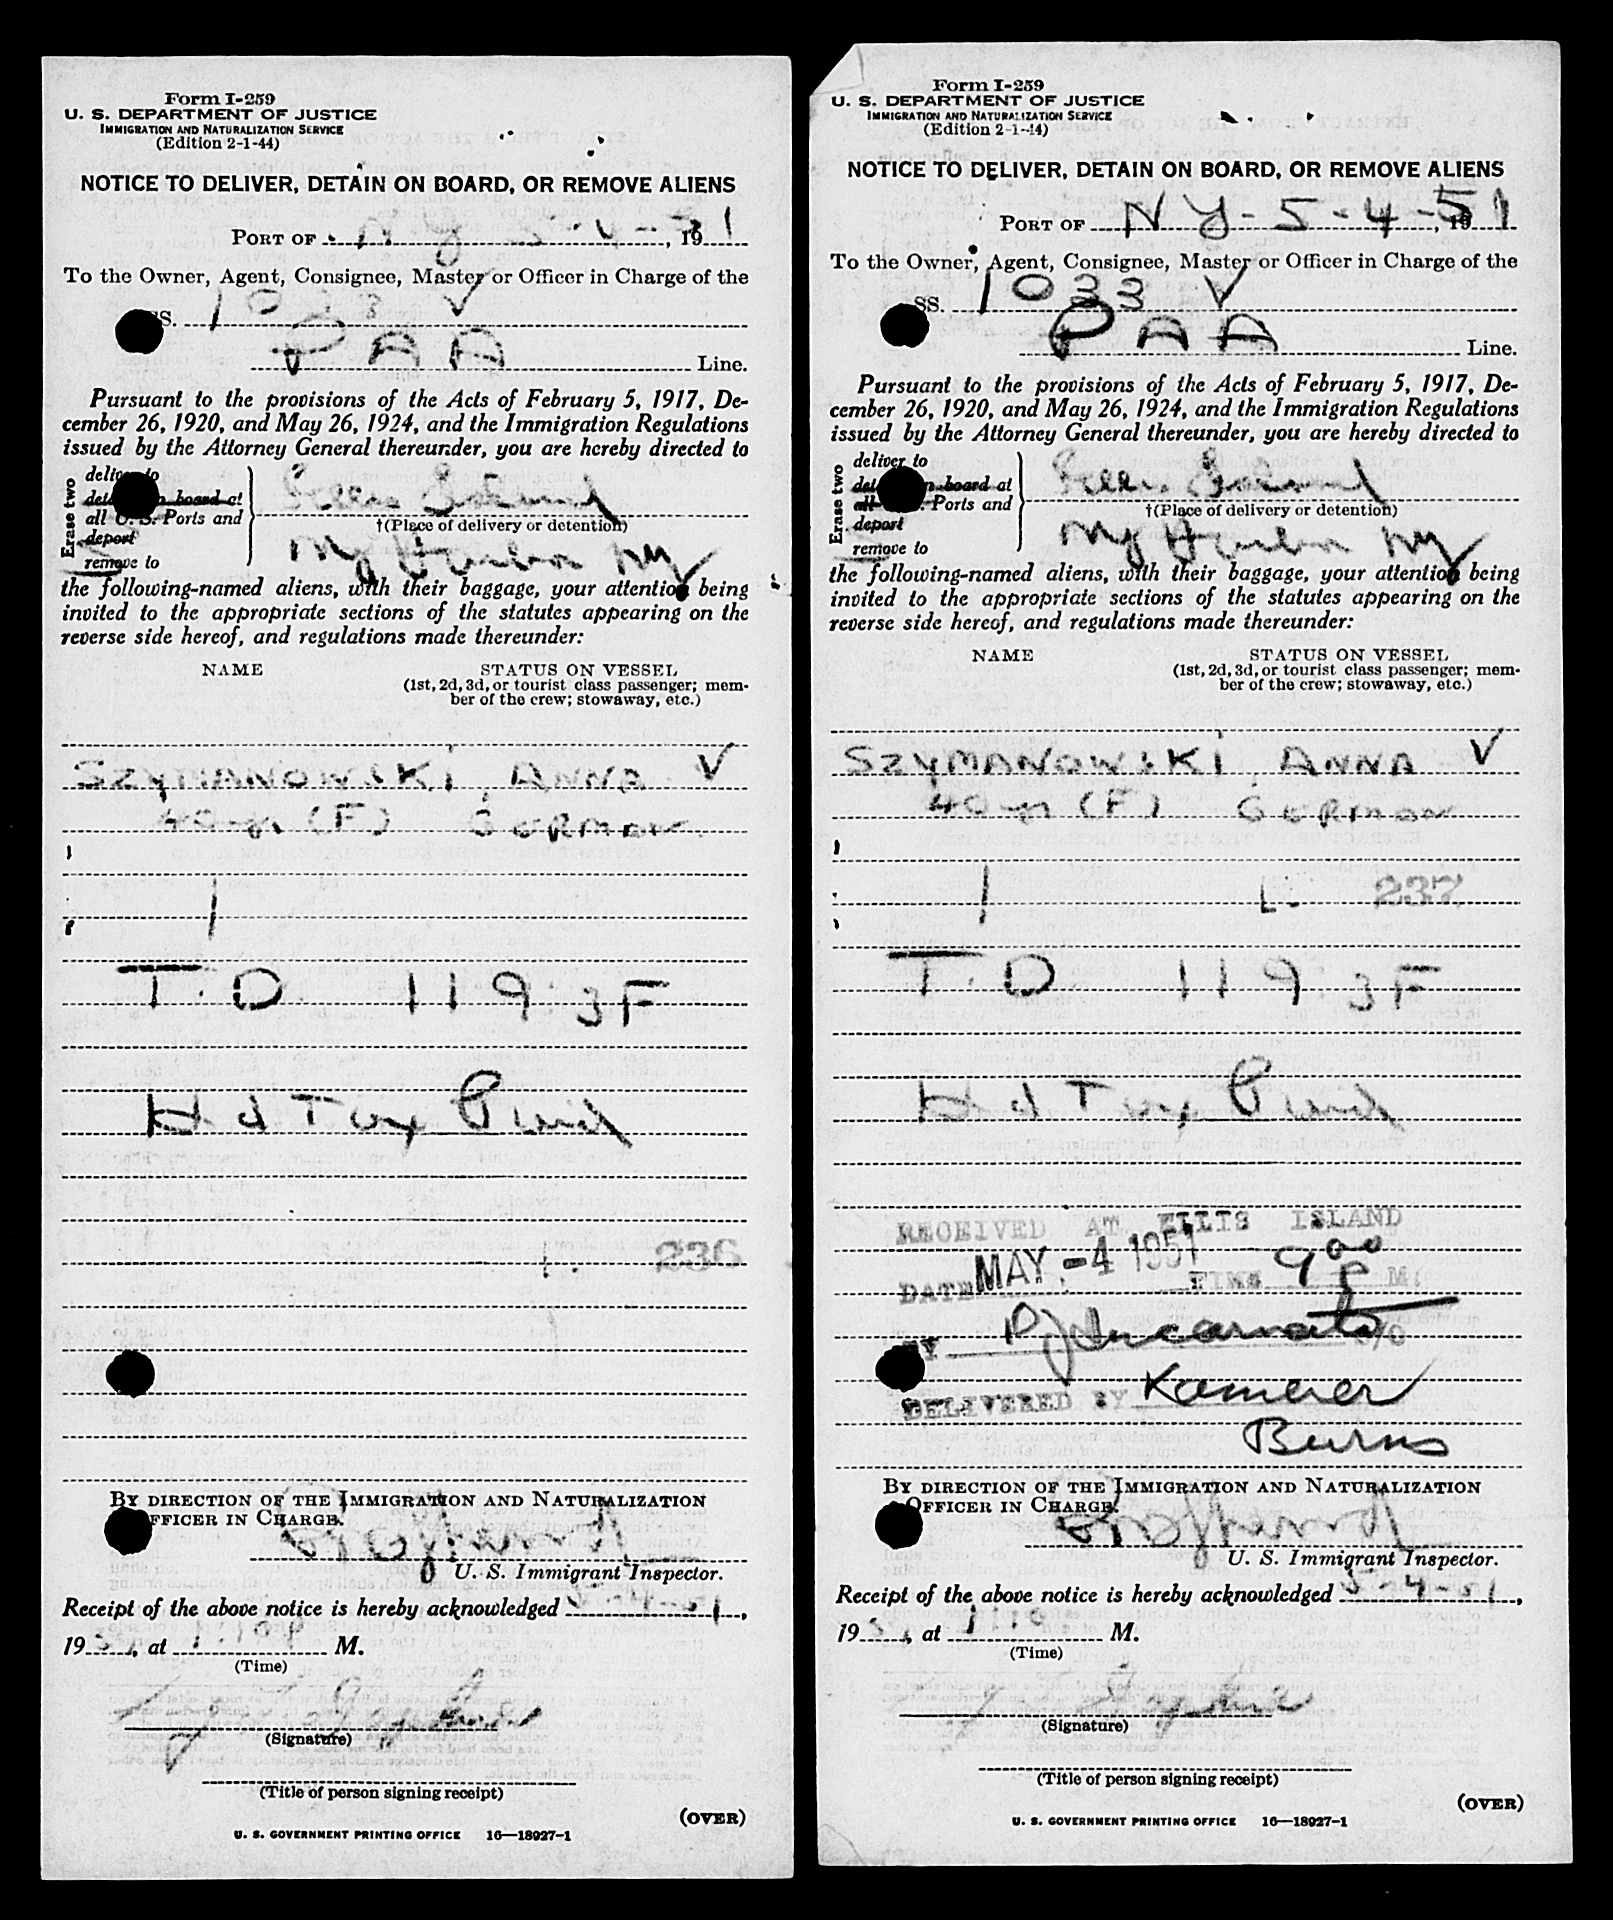 Form I-259
U. S. DEPARTMENT OF JUSTICE
IMMIGRATION AND NATURALIZATION SERVICE
(Edition 2-1-44)
NOTICE TO DELIVER, DETAIN ON BOARD, OR REMOVE ALIENS
PORT OF NY 5-4-, 1951
To the Owner, Agent, Consignee, Master or Officer in Charge of the
SS. 1033 V
PAA Line.
Pursuant to the provisions of the Acts of February 5, 1917, De-
cember 26, 1920, and May 26, 1924, and the Immigration Regulations
issued by the Attorney General thereunder, you are hereby directed to
Erase two
deliver to
detain on board at
all U. S. Ports and
deport
remove to
Ellis Island
†(Place of delivery or detention)
NY Harbor NY
the following-named aliens, with their baggage, your attention being
invited to the appropriate sections of the statutes appearing on the
reverse side hereof, and regulations made thereunder:
NAME STATUS ON VESSEL
(1st, 2d, 3d, or tourist class passenger; mem-
ber of the crew; stowaway, etc.)
SZYMANOWSKI, ANNA V
40 yr (F) GERMAN
1
T.D. 119.3F
Hd Tax Paid
236
BY DIRECTION OF THE IMMIGRATION AND NATURALIZATION
OFFICER IN CHARGE.
U. S. Immigrant Inspector.
Receipt of the above notice is hereby acknowledged 5-4-51,
1951, at 1:10P M.
(Time)
(Signature)
(Title of person signing receipt)
(OVER)
U. S. GOVERNMENT PRINTING OFFICE 16—18927-1
Form I-259
U. S. DEPARTMENT OF JUSTICE
IMMIGRATION AND NATURALIZATION SERVICE
(Edition 2-1-44)
NOTICE TO DELIVER, DETAIN ON BOARD, OR REMOVE ALIENS
PORT OF NY - 5-4-51, 19
To the Owner, Agent, Consignee, Master or Officer in Charge of the
SS. 1033 V
PAA Line.
Pursuant to the provisions of the Acts of February 5, 1917, De-
cember 26, 1920, and May 26, 1924, and the Immigration Regulations
issued by the Attorney General thereunder, you are hereby directed to
Erase two
deliver to
detain on board at
all U. S. Ports and
deport
remove to
Ellis Island
†(Place of delivery or detention)
NY Harbor NY
the following-named aliens, with their baggage, your attention being
invited to the appropriate sections of the statutes appearing on the
reverse side hereof, and regulations made thereunder:
NAME STATUS ON VESSEL
(1st, 2d, 3d, or tourist class passenger; mem-
ber of the crew; stowaway, etc.)
SZYMANOWSKI, ANNA V
40 yr (F) GERMAN
1 237
T.D. 119.3F
Hd Tax Paid
RECEIVED AT ELLIS ISLAND
DATE MAY -4 1951 TIME 9 00 P M.
BY P J Incarnato
DELIVERED BY Kamerer
Burns
BY DIRECTION OF THE IMMIGRATION AND NATURALIZATION
OFFICER IN CHARGE.
U. S. Immigrant Inspector.
Receipt of the above notice is hereby acknowledged 5-4-51,
1951, at 1:10 M.
(Time)
(Signature)
(Title of person signing receipt)
(OVER)
U. S. GOVERNMENT PRINTING OFFICE 16—18927-1